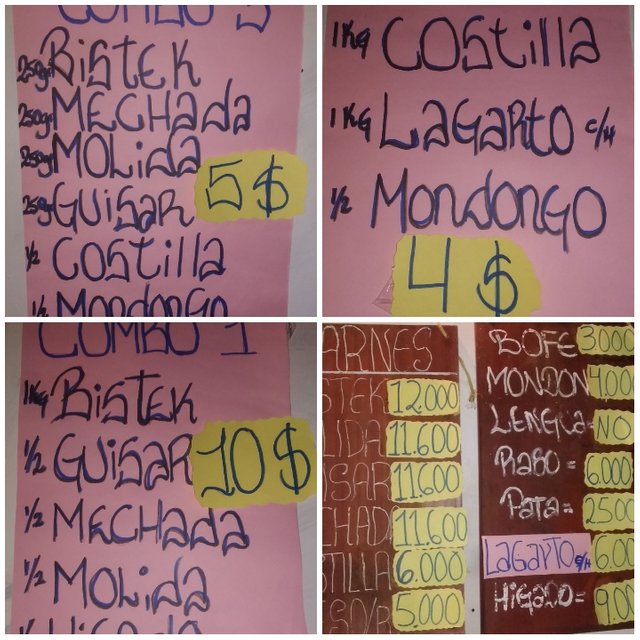 COMBO 5
250gr BiSTEK
250gr MECHada
250gr MOLida
5 $
250gr GUiSaR
1/2 COSTilla
1/2 MONDONGO
1Kg COStilla
1 Kg LaGaRto c/H
1/2 MONDONGO
4 $
COMBO 1
1Kg BiSTEK
1/2 GUiSaR
10 $
1/2 MECHada
1/2 MOLida
ARNES
STEK 12.000
LIDA 11.600
ISAR 11.600
CHAD 11.600
TILLA 6.000
5.000
BOFE 3000
MONDON 4.00
LENGUA= NO
RaBO = 6.000
Pata= 2500
LaGaRTO c/H 6.00
HiGaDO= 9.00